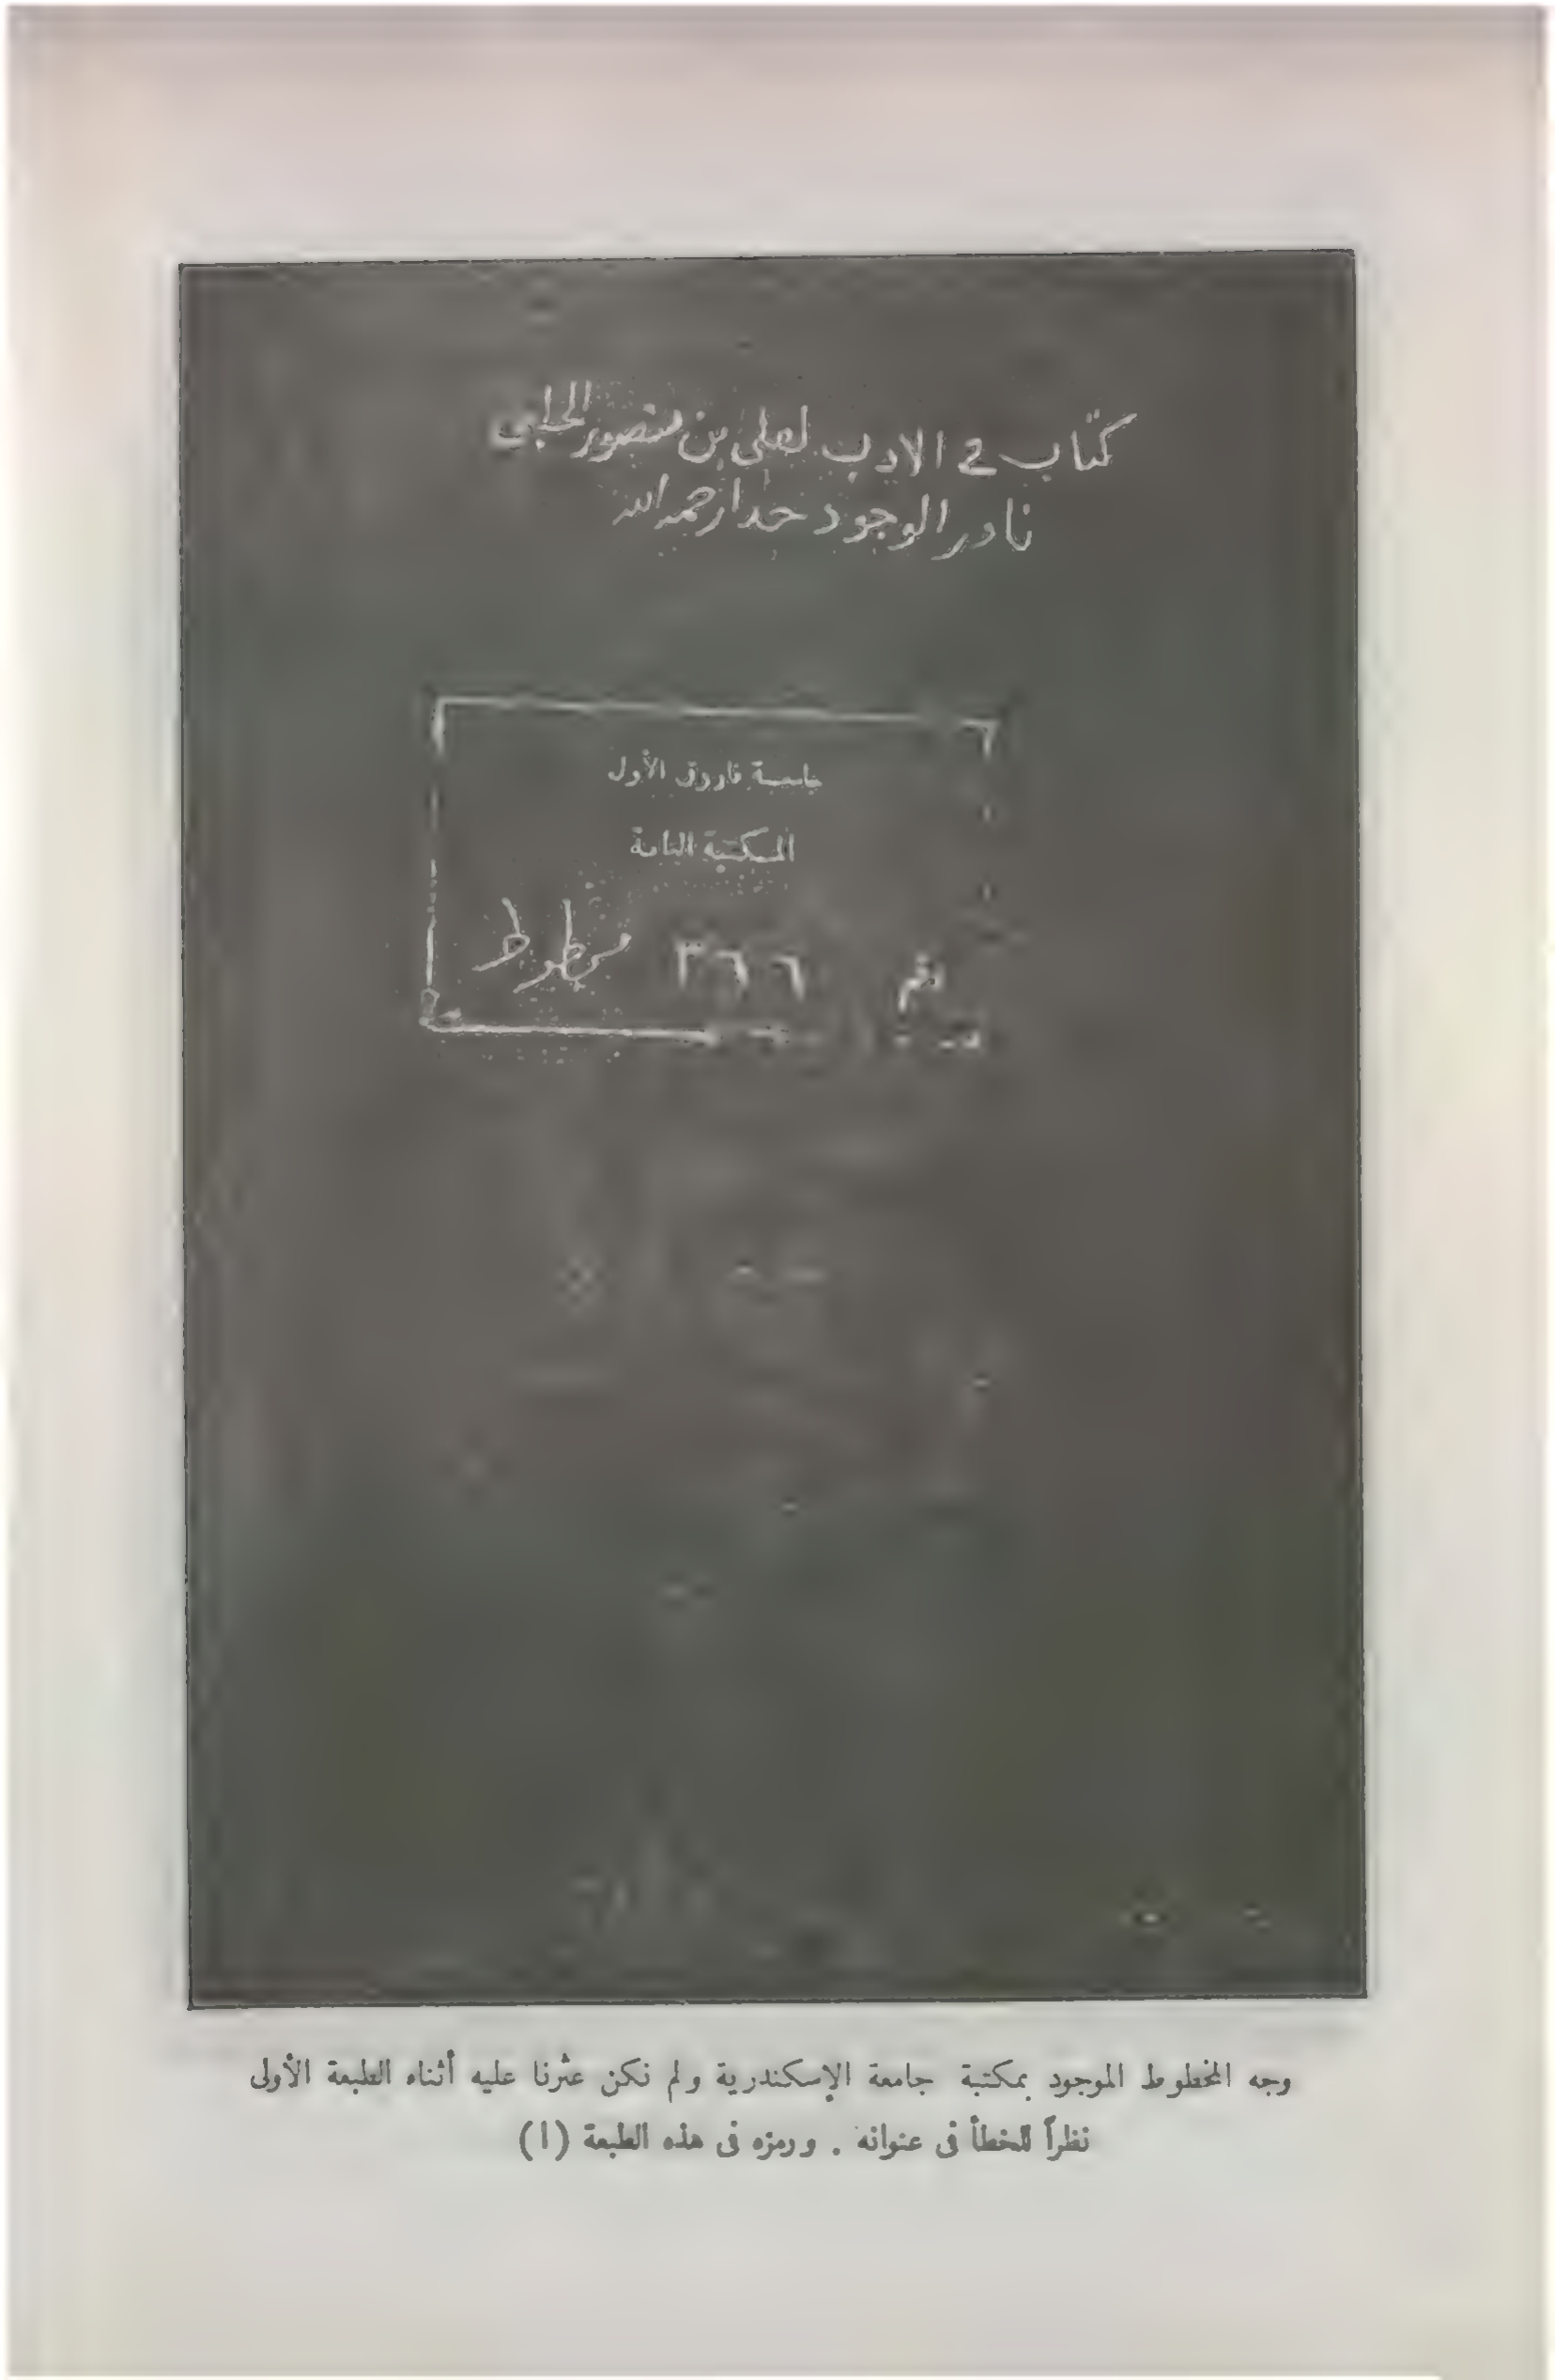 كتاب في الادب لعلي بن منصور الحلبي
نادر الوجود جدا رحمه الله
جامعة فاروق الأول
المكتبة العامة
رقم ٣٦٦ مخطوط
وجه المخطوط الموجود بمكتبة جامعة الإسكندرية ولم نكن عثرنا عليه أثناء الطبعة الأولى
نظراً للخطأ فى عنوانه . ورمزه فى هذه الطبعة (ا)